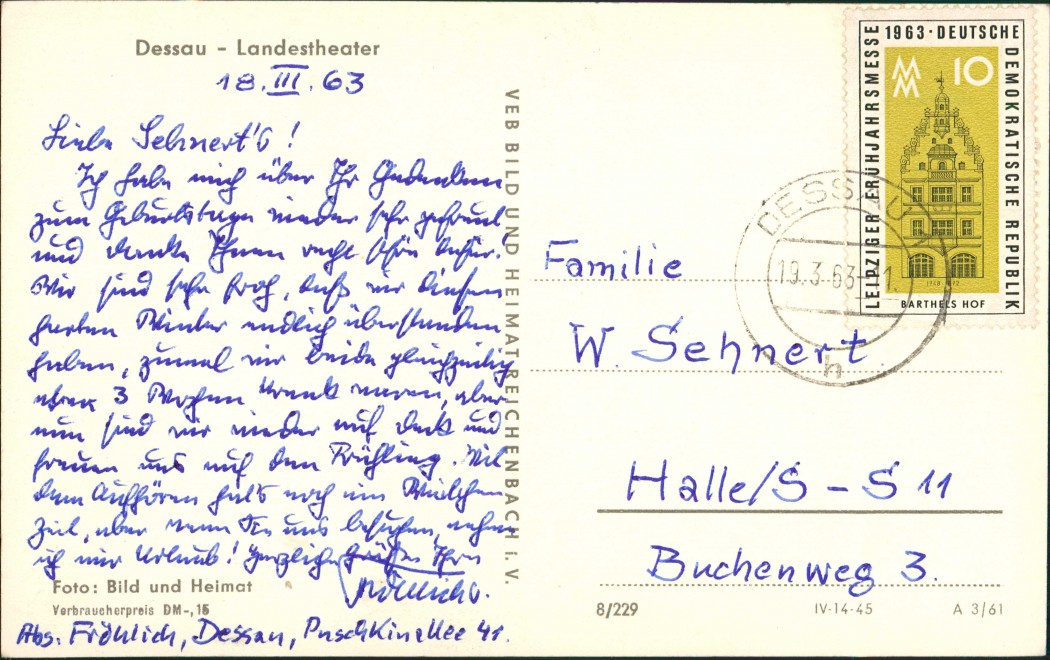 Dessau - Landestheater
18.III.63
Liebe Sehnert's!
Ich habe mich über Ihr Gedenken
zum Geburtstage wieder sehr gefreut
und danke Ihnen recht schön dafür!
Wir sind sehr froh, daß wir diesen
harten Winter endlich überstanden
haben, zumal wir beide gleichzeitig
etwa 3 Wochen krank waren, aber
nun sind wir wieder auf Deck und
freuen uns auf den Frühling. Mit
dem Aufhören hat's noch ein Weilchen
Zeit, aber wenn Sie uns besuchen, nehme
ich mir Urlaub! Herzliche Grüße Ihre
Fröhlichs.
Foto: Bild und Heimat
Verbraucherpreis DM -,15
Abs: Fröhlich, Dessau, Puschkinallee 41.
VEB BILD UND HEIMAT REICHENBACH i. V.
LEIPZIGER FRÜHJAHRSMESSE
1963 · DEUTSCHE
DEMOKRATISCHE REPUBLIK
MM 10
BARTHELS HOF
DESSAU 1
19.3.63-11.
h
Familie
W. Sehnert
Halle/S - S 11
Buchenweg 3.
8/229 IV-14-45 A 3/61